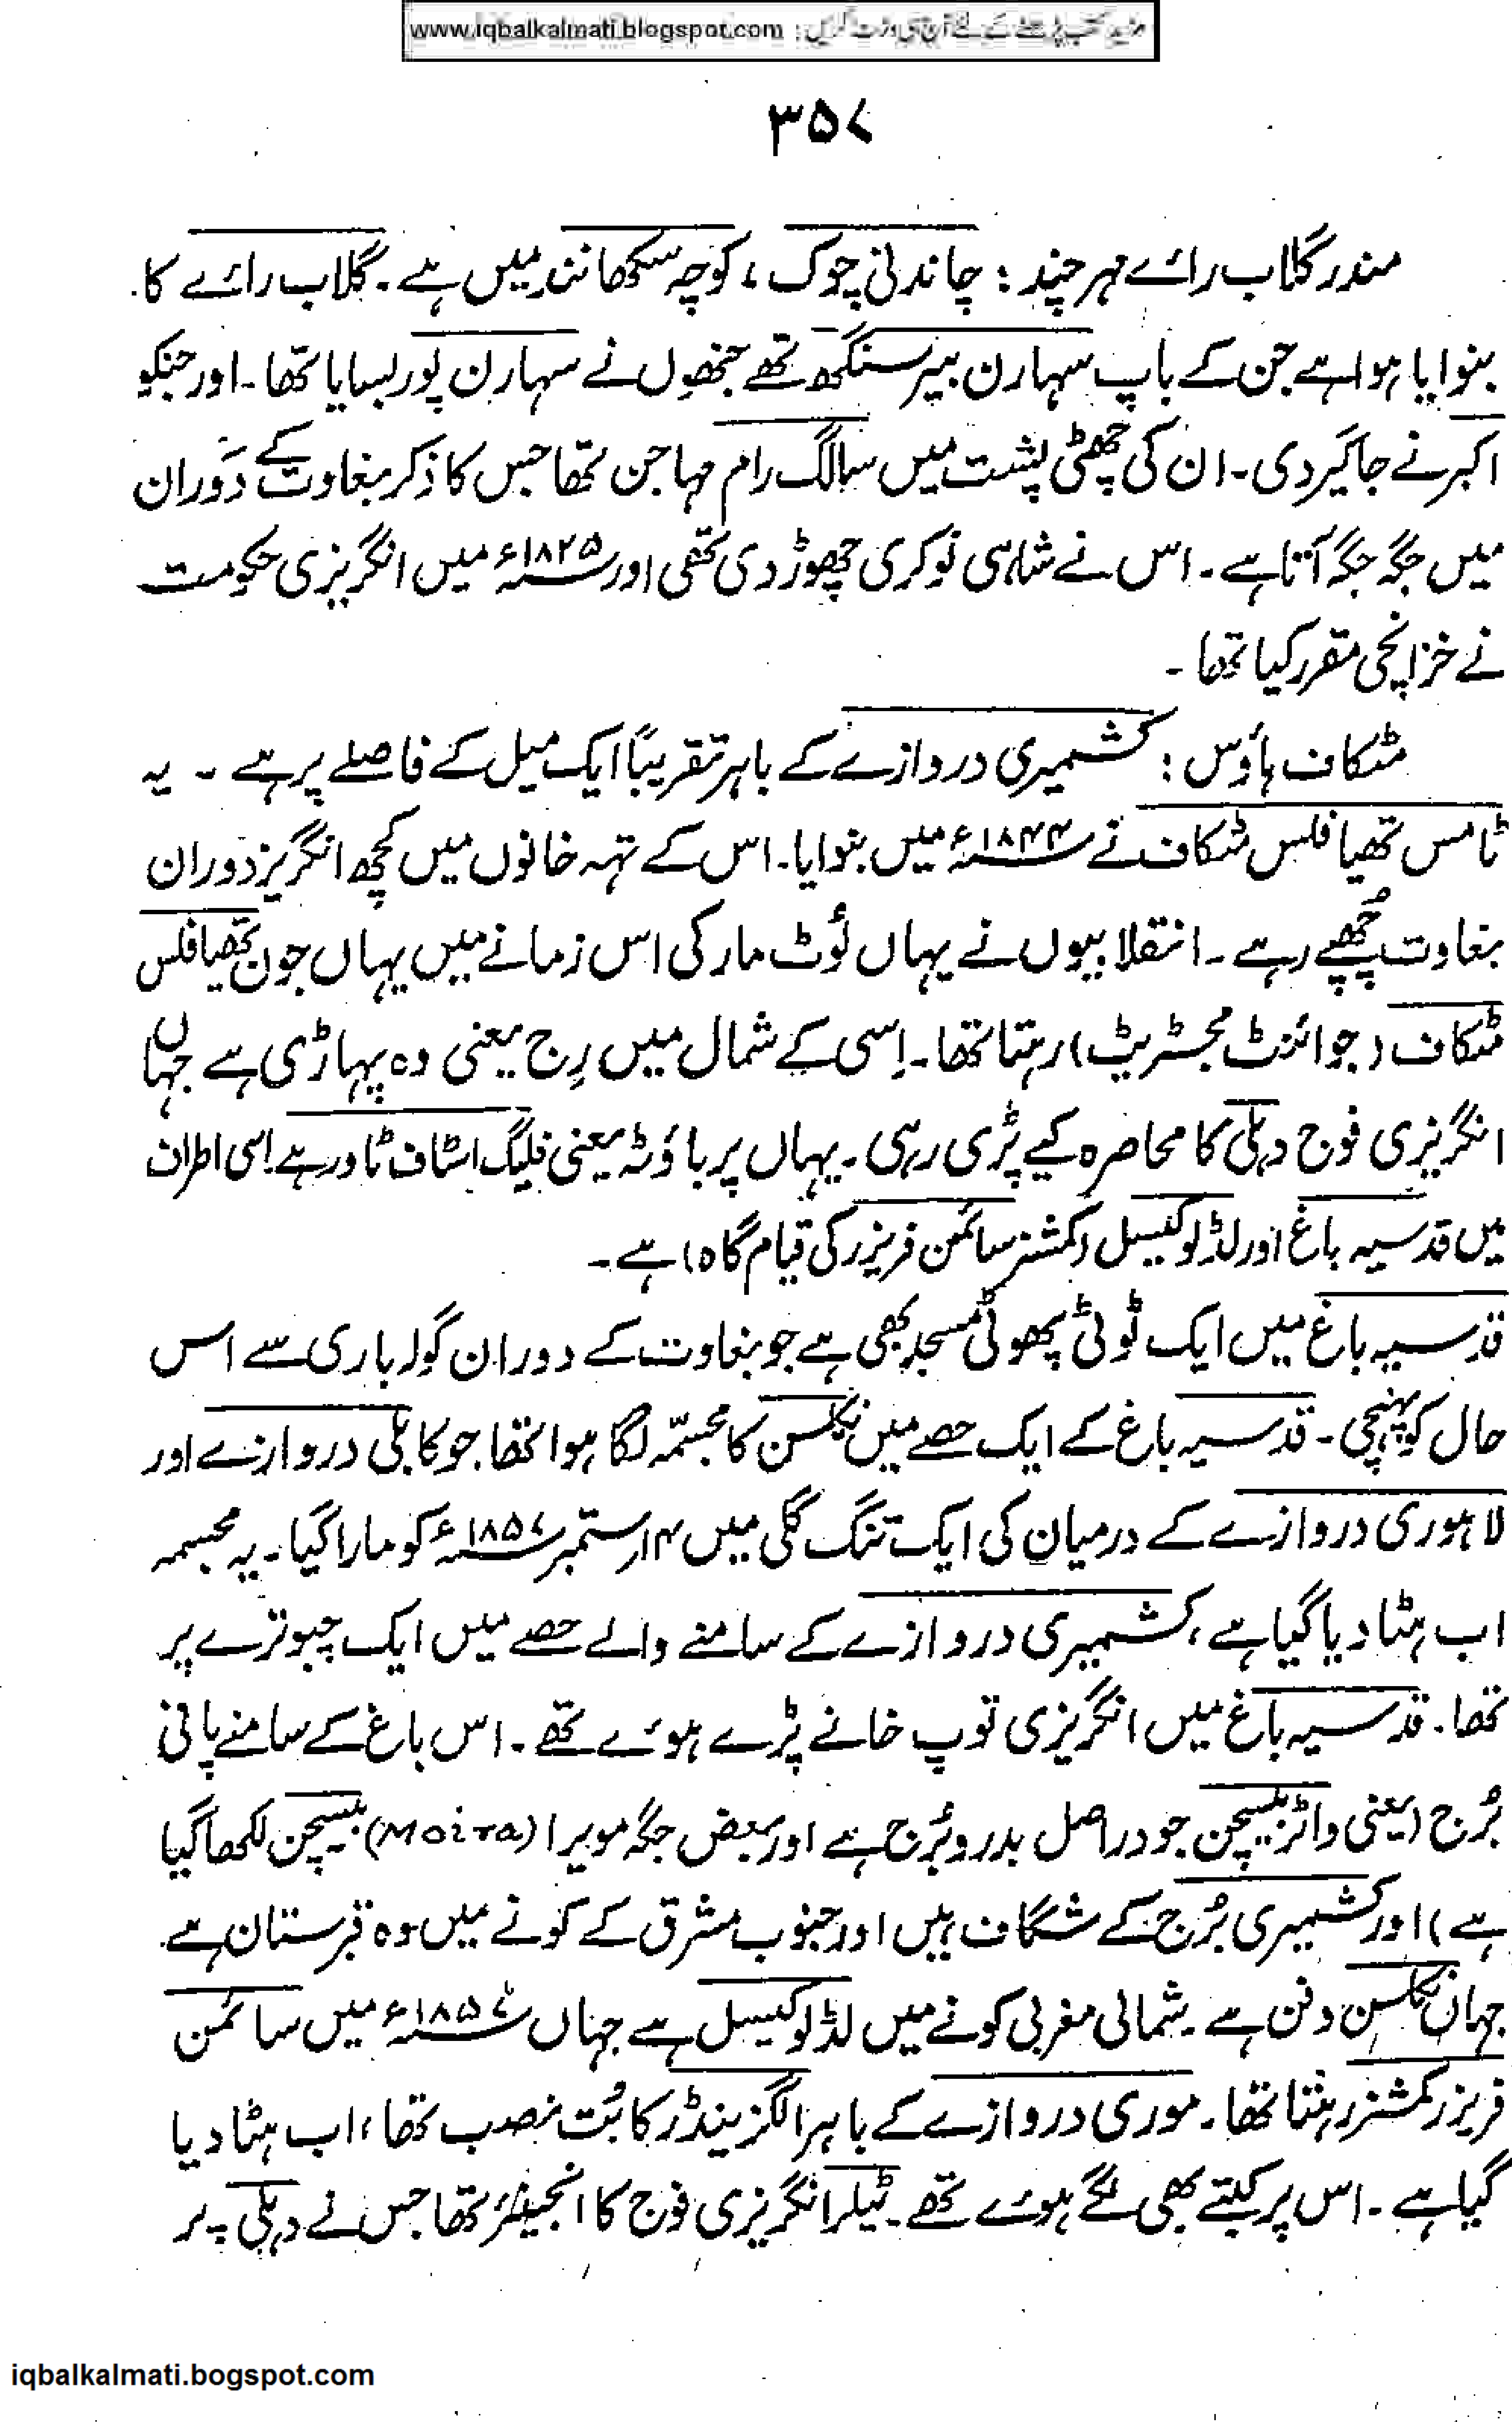 www.iqbalkalmati.blogspot.com : مزید کتب پڑھنے کے لئے آج ہی وزٹ کریں
۳۵۷
مندر گلاب رائے مہر چند : چاندنی چوک ، کوچہ سکھانند میں ہے ۔ گلاب رائے کا
بنوایا ہوا ہے جن کے باپ سہارن بیر سنگھ تھے جنھوں نے سہارن پور بسایا تھا ۔ اور جنکو
اکبر نے جاگیر دی ۔ ان کی چھٹی پشت میں سالگ رام مہاجن تھا جس کا ذکر بغاوت کے دَوران
میں جگہ جگہ آتا ہے ۔ اس نے شاہی نوکری چھوڑ دی تھی اور ۱۸۲۵ء میں انگریزی حکومت
نے خزانچی مقرر کیا تھا ۔
مٹکاف ہاؤس : کشمیری دروازے کے باہر تقریباً ایک میل کے فاصلے پر ہے ۔ یہ
ٹامس تھیافلس مٹکاف نے ۱۸۴۴ء میں بنوایا ۔ اس کے تہہ خانوں میں کچھ انگریز دوران
بغاوت چُھپے رہے ۔ انقلابیوں نے یہاں لُوٹ مار کی اس زمانے میں یہاں جون تھیافلس
مٹکاف (جوائنٹ مجسٹریٹ) رہتا تھا ۔ اِسی کے شمال میں رِج یعنی وہ پہاڑی ہے جہاں
انگریزی فوج دہلی کا محاصرہ کیے پڑی رہی ۔ یہاں پر باؤٹہ یعنی فلیگ اسٹاف ٹاور ہے اسی اطراف
میں قدسیہ باغ اور لڈلو کیسل (کمشنر سائمن فریزر کی قیام گاہ) ہے ۔
قدسیہ باغ میں ایک ٹوٹی پھوٹی مسجد بھی ہے جو بغاوت کے دوران گولہ باری سے اس
حال کو پہنچی ۔ قدسیہ باغ کے ایک حصے میں نکلسن کا مجسمّہ لگا ہوا تھا جو کابلی دروازے اور
لاہوری دروازے کے درمیان کی ایک تنگ گلی میں ۱۴ ستمبر ۱۸۵۷ء کو مارا گیا ۔ یہ مجسمہ
اب ہٹا دیا گیا ہے ، کشمیری دروازے کے سامنے والے حصے میں ایک چبوترے پر
تھا ۔ قدسیہ باغ میں انگریزی توپ خانے پڑے ہوئے تھے ۔ اس باغ کے سامنے پانی
بُرج (یعنی واٹر بیسچن جو دراصل بدررو بُرج ہے اور بعض جگہ مویرا (Moira) بیسچن لکھا گیا
ہے) اور کشمیری بُرج کے شگاف ہیں اور جنوب مشرق کے کونے میں وہ قبرستان ہے
جہاں نکلسن دفن ہے ۔ شمالی مغربی کونے میں لڈلو کیسل ہے جہاں ۱۸۵۷ء میں سائمن
فریزر کمشنر رہتا تھا ۔ موری دروازے کے باہر الگزینڈر کا بُت نصب تھا ، اب ہٹا دیا
گیا ہے ۔ اس پر کتبے بھی لگے ہوئے تھے ۔ ٹیلر انگریزی فوج کا انجینئر تھا جس نے دہلی پر
iqbalkalmati.bogspot.com